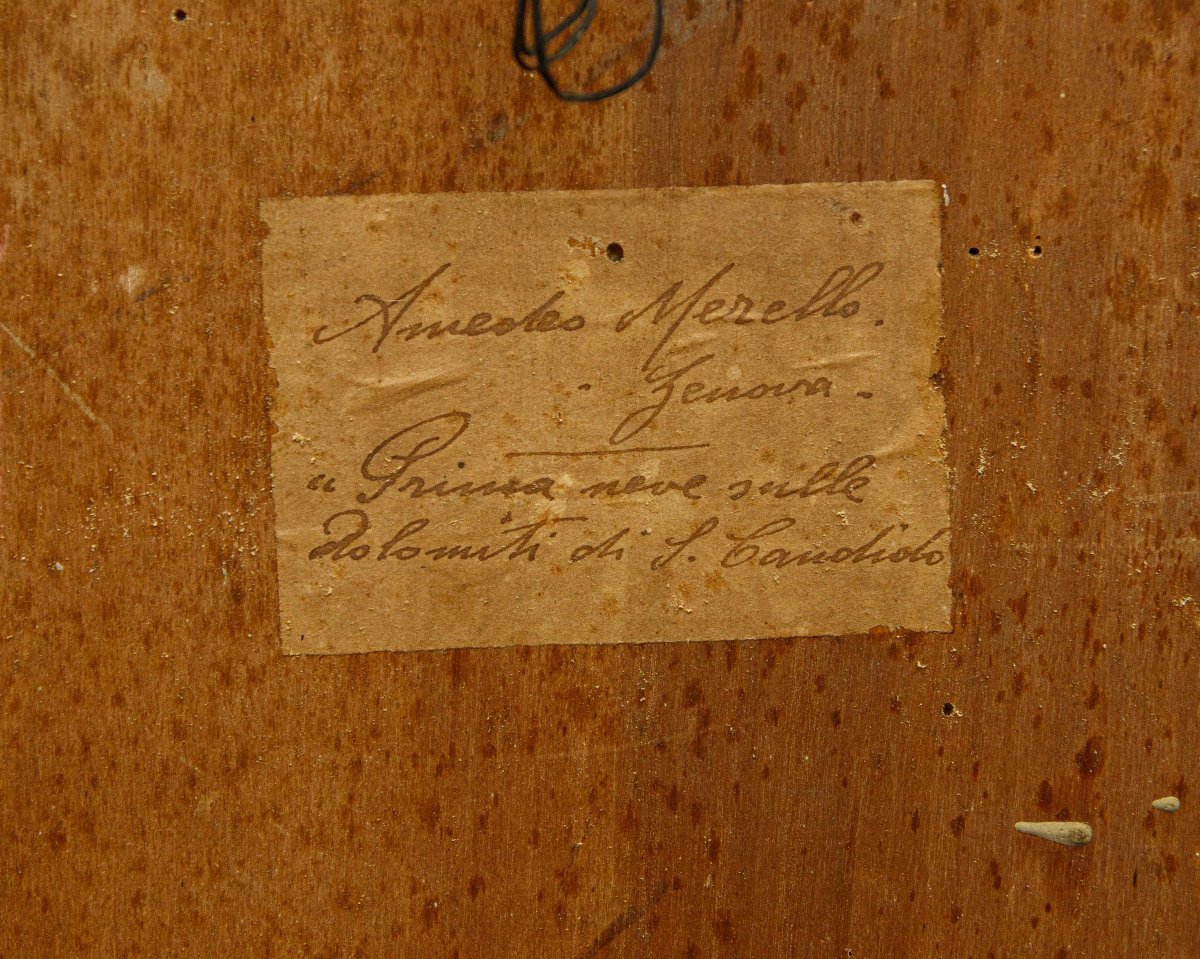 Amedeo Merello.
- Genova -
" Prima neve sulle
Dolomiti di S. Candido